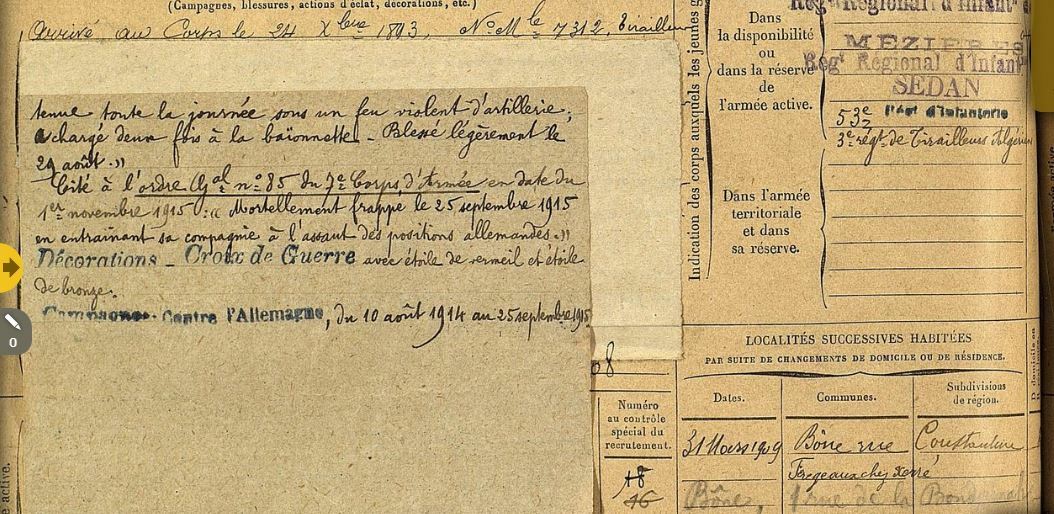 (Campagnes, blessures, actions d'éclat, décorations, etc.)
Arrivé au Corps le 24 Xbre 1893, No Mle 7312, Tirailleur
tenue toute la journée sous un feu violent d'artillerie;
a chargé deux fois à la baïonnette - Blessé légèrement le
29 août.»
Cité à l'ordre Gal no 85 du 7e Corps d'Armée en date du
1er novembre 1915 : « Mortellement frappé le 25 septembre 1915
en entraînant sa compagnie à l'assaut des positions allemandes.»
Décorations - Croix de Guerre avec étoile de vermeil et étoile
de bronze.
Campagnes. Contre l'Allemagne, du 10 août 1914 au 25 septembre 1915
08
Numéro
au contrôle
spécial du
recrutement.
18
16
Indication des corps auxquels les jeunes g
Dans
la disponibilité
ou
dans la réserve
de
l'armée active.
Dans l'armée
territoriale
et dans
sa réserve.
Reg Régional d'Infant
MEZIERES
Reg Régional d'Infant
SEDAN
53e Régt d'Infanterie
3e régt de Tirailleurs Algérien
LOCALITÉS SUCCESSIVES HABITÉES
PAR SUITE DE CHANGEMENTS DE DOMICILE OU DE RÉSIDENCE.
Dates.
Communes.
Subdivisions
de région.
31 Mars 1909
Bône rue
Constantine
chez
Bône, 1 rue de la
e active.
0